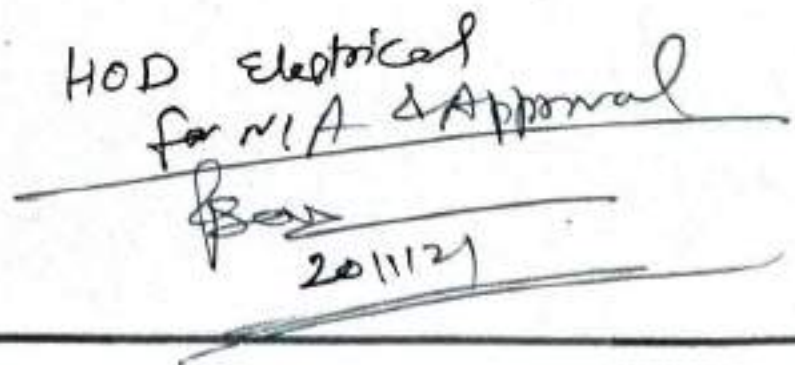 HOD Electrical
for N/A & Approval
20/1/21